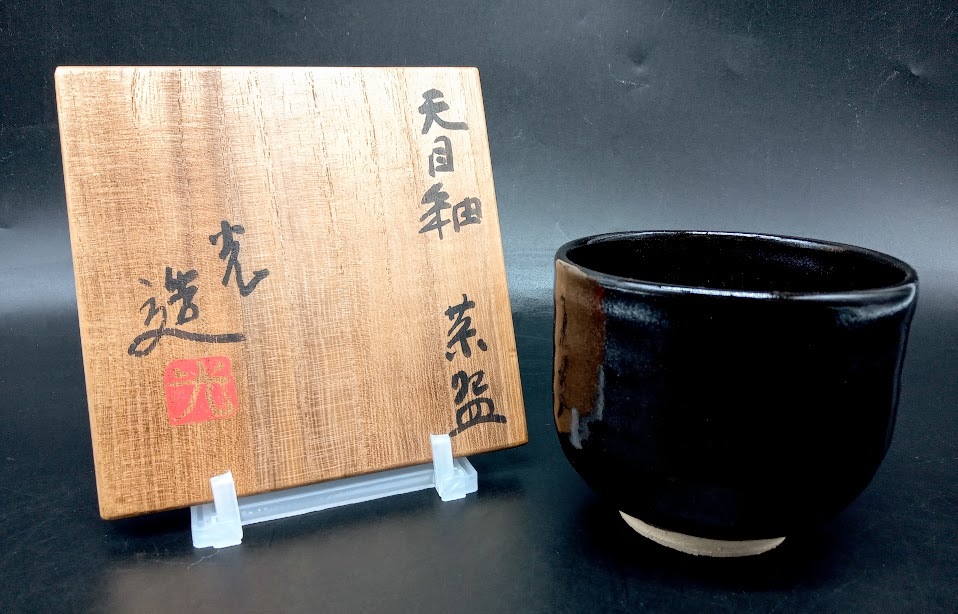 天目釉 茶盌
光造
光